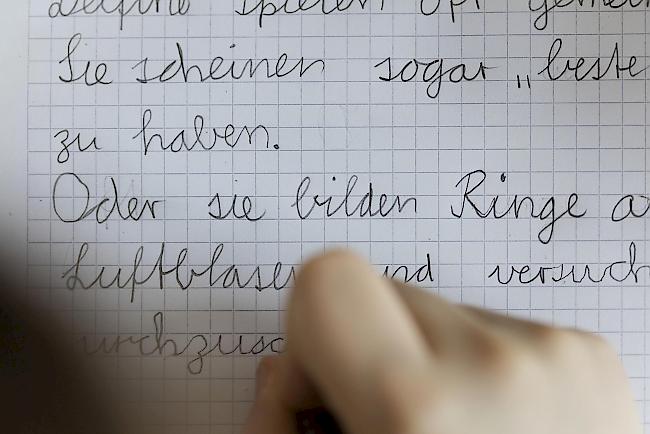 Delfine spielen oft gemein
Sie scheinen sogar „beste
zu haben.
Oder sie bilden Ringe a
Luftblasen und versuch
urchzusc